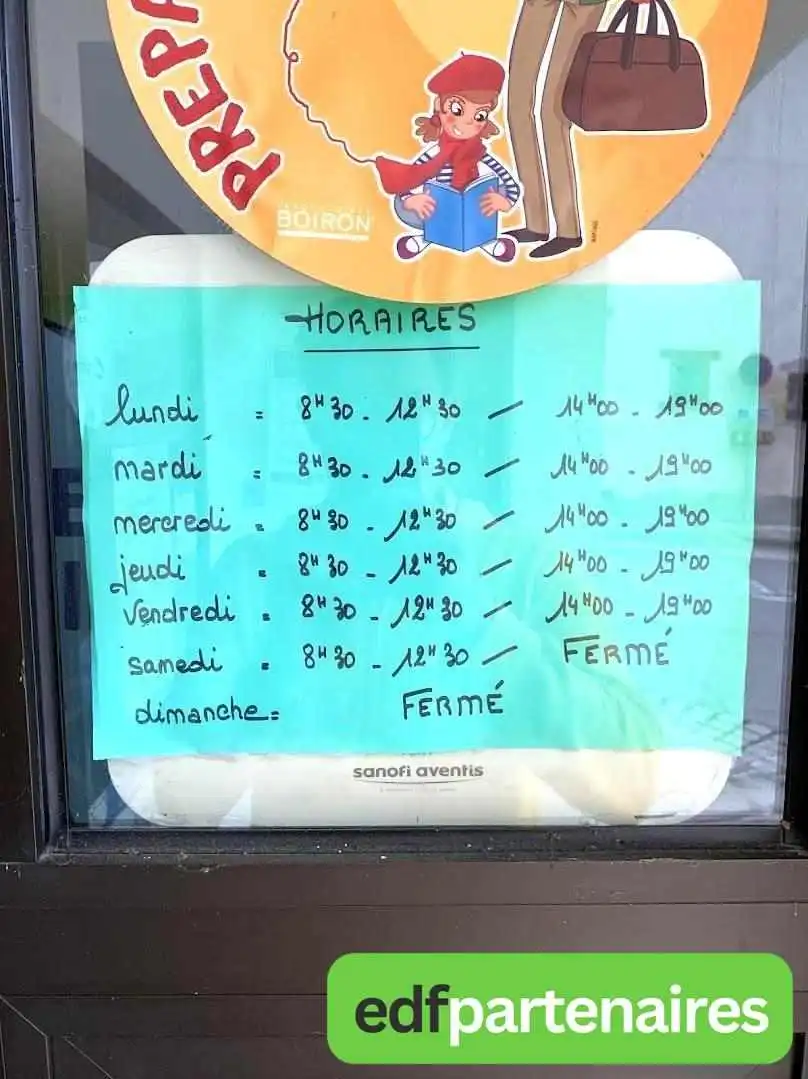 PREPA
BOIRON
HORAIRES
lundi = 8H30 - 12H30 / 14H00 - 19H00
mardi = 8H30 - 12H30 / 14H00 - 19H00
mercredi = 8H30 - 12H30 / 14H00 - 19H00
jeudi = 8H30 - 12H30 / 14H00 - 19H00
vendredi = 8H30 - 12H30 / 14H00 - 19H00
samedi = 8H30 - 12H30 / FERMÉ
dimanche = FERMÉ
sanofi aventis
edfpartenaires